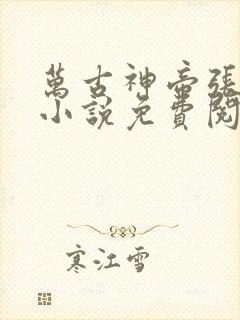 萬古神帝張
小說免費閱
寒江雪